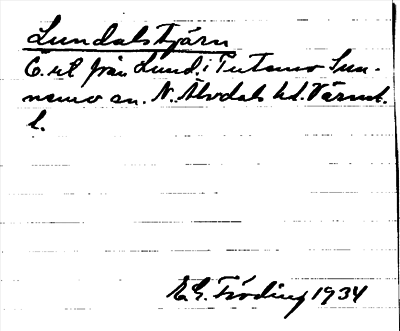 Lundalstjärn
Ö. ut från Lund i Tutemo Sun-
nemo sn. N. Älvdals hd. Värml.
l.
E.G. Fröding 1934